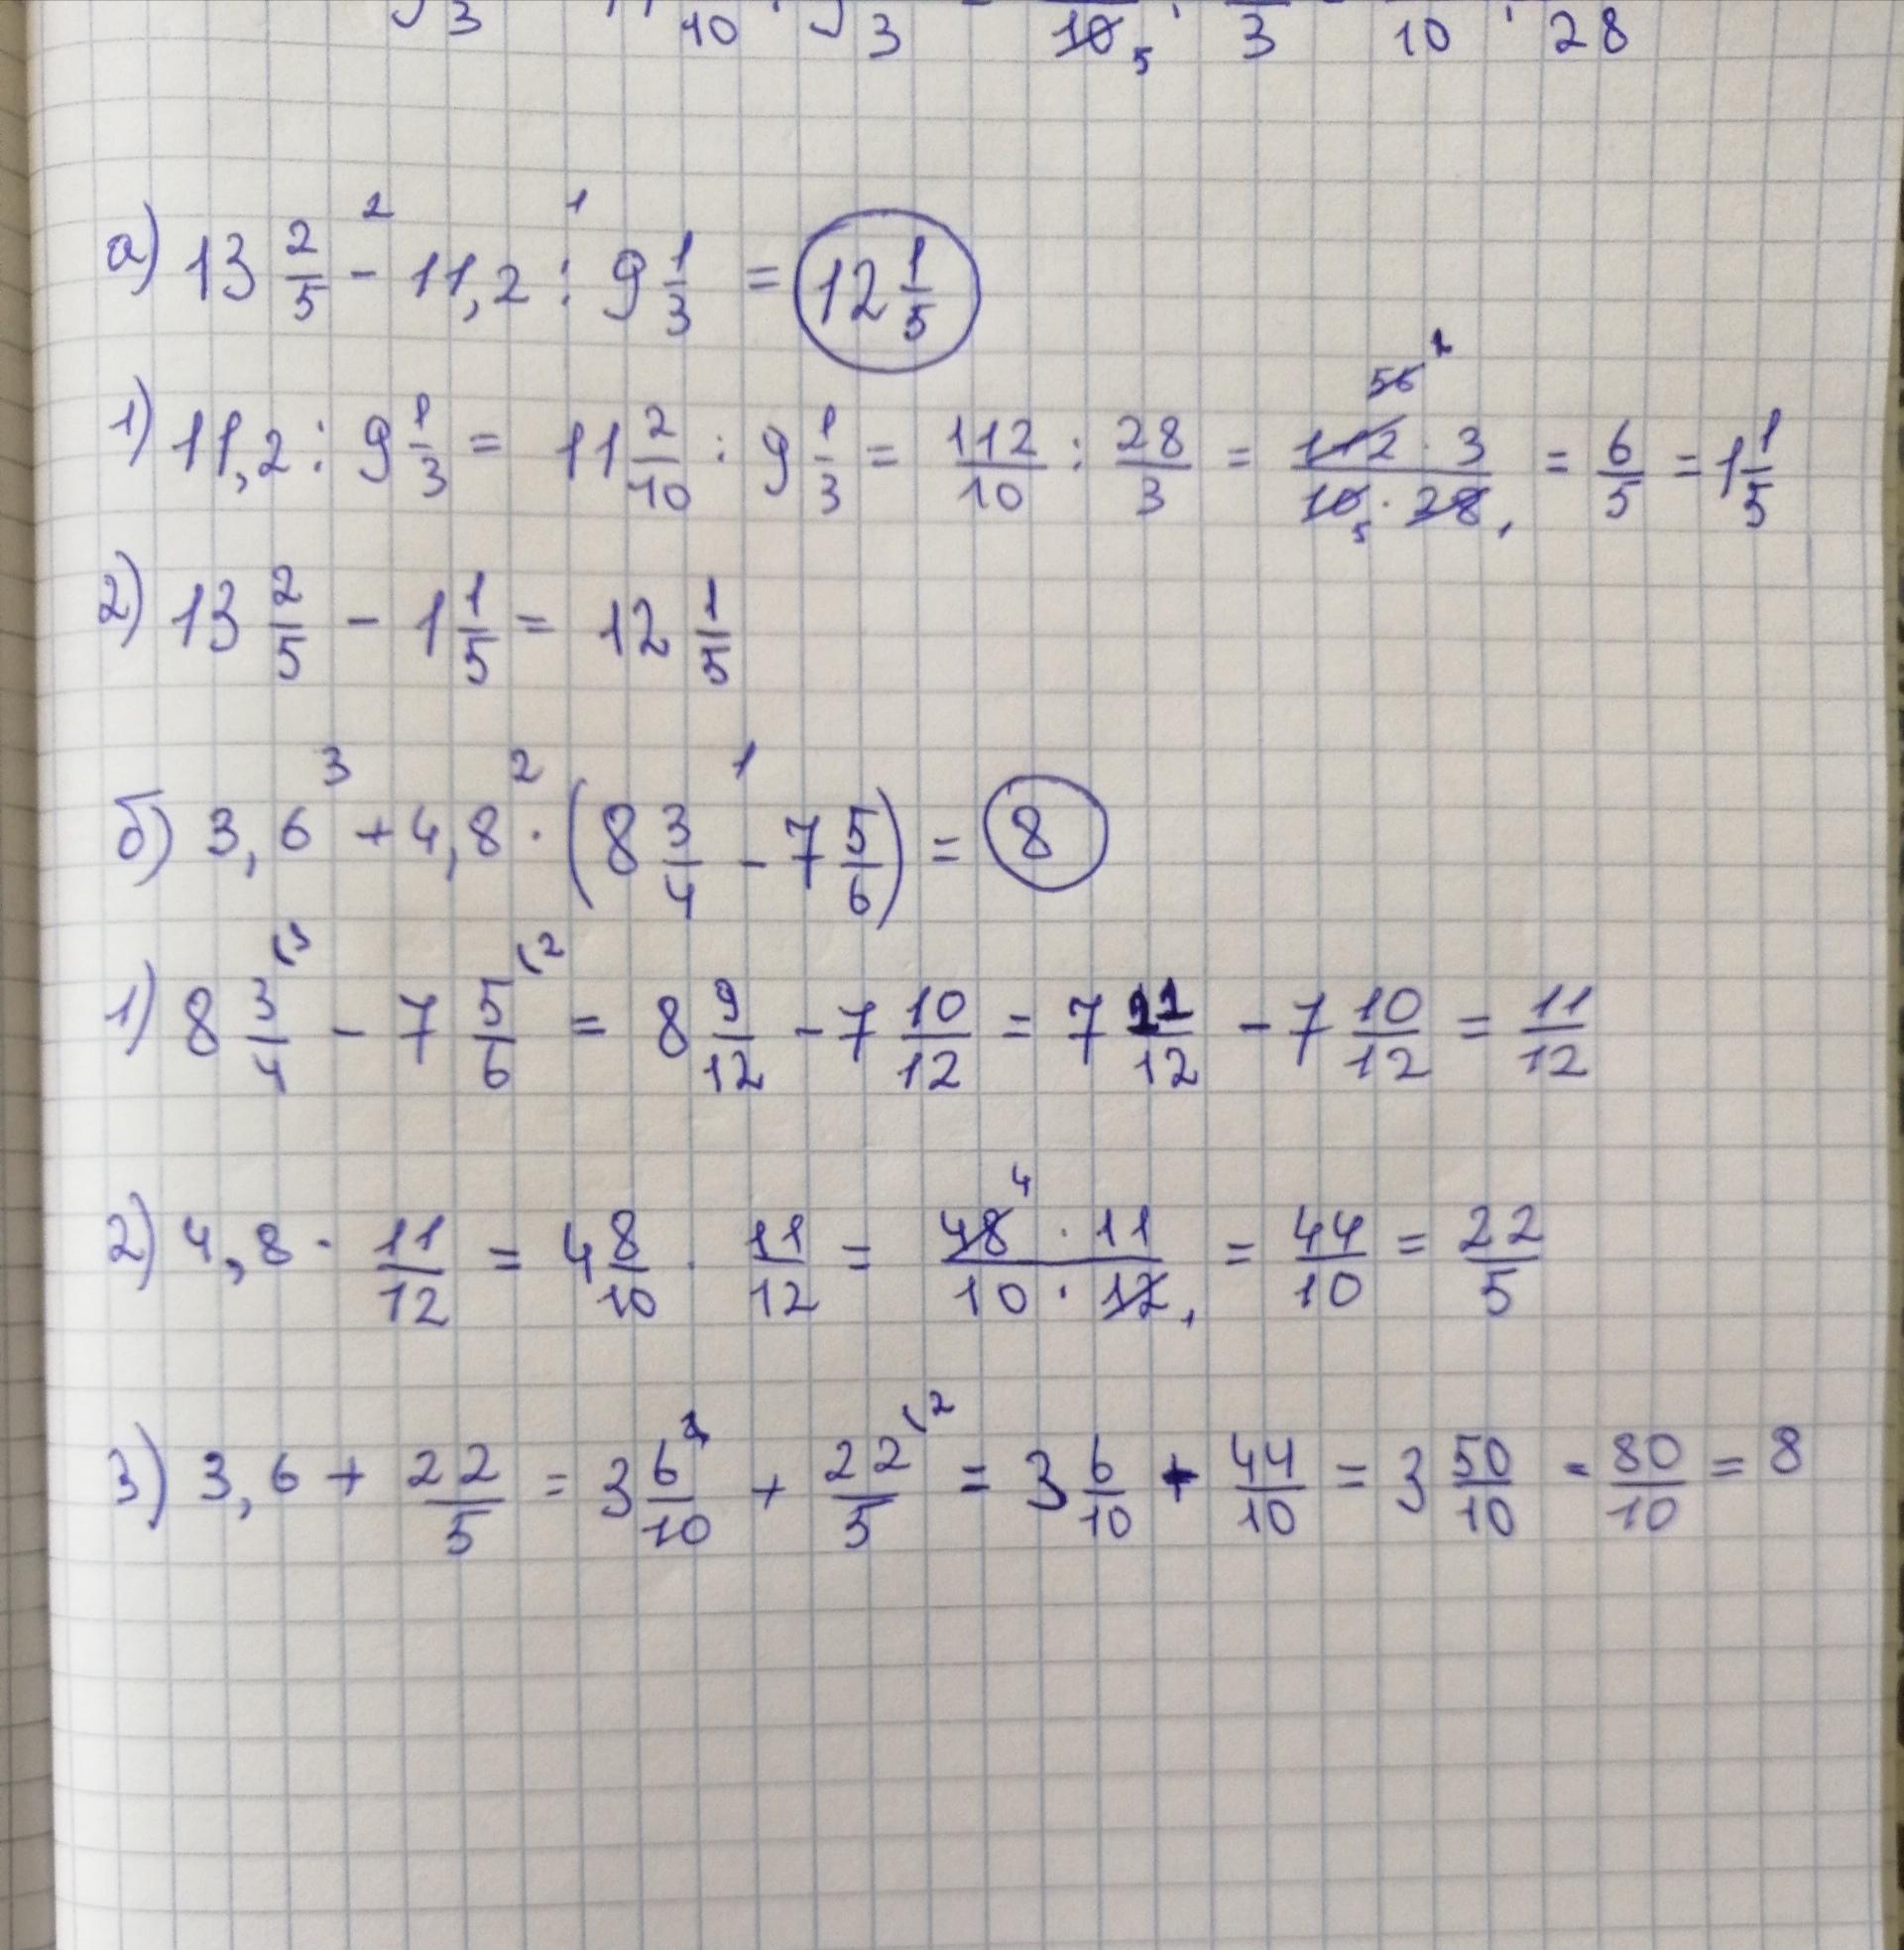 3 10 3 10 5 3 10 28
а) 13 2/5 - 11,2 : 9 1/3 = 12 1/5
1) 11,2 : 9 1/3 = 11 2/10 : 9 1/3 = 112/10 : 28/3 = 112 · 3 / 10 · 28 = 6/5 = 1 1/5
2) 13 2/5 - 1 1/5 = 12 1/5
б) 3,6 + 4,8 · (8 3/4 - 7 5/6) = 8
1) 8 3/4 - 7 5/6 = 8 9/12 - 7 10/12 = 7 21/12 - 7 10/12 = 11/12
2) 4,8 · 11/12 = 4 8/10 · 11/12 = 48 · 11 / 10 · 12 = 44/10 = 22/5
3) 3,6 + 22/5 = 3 6/10 + 22/5 = 3 6/10 + 44/10 = 3 50/10 = 80/10 = 8